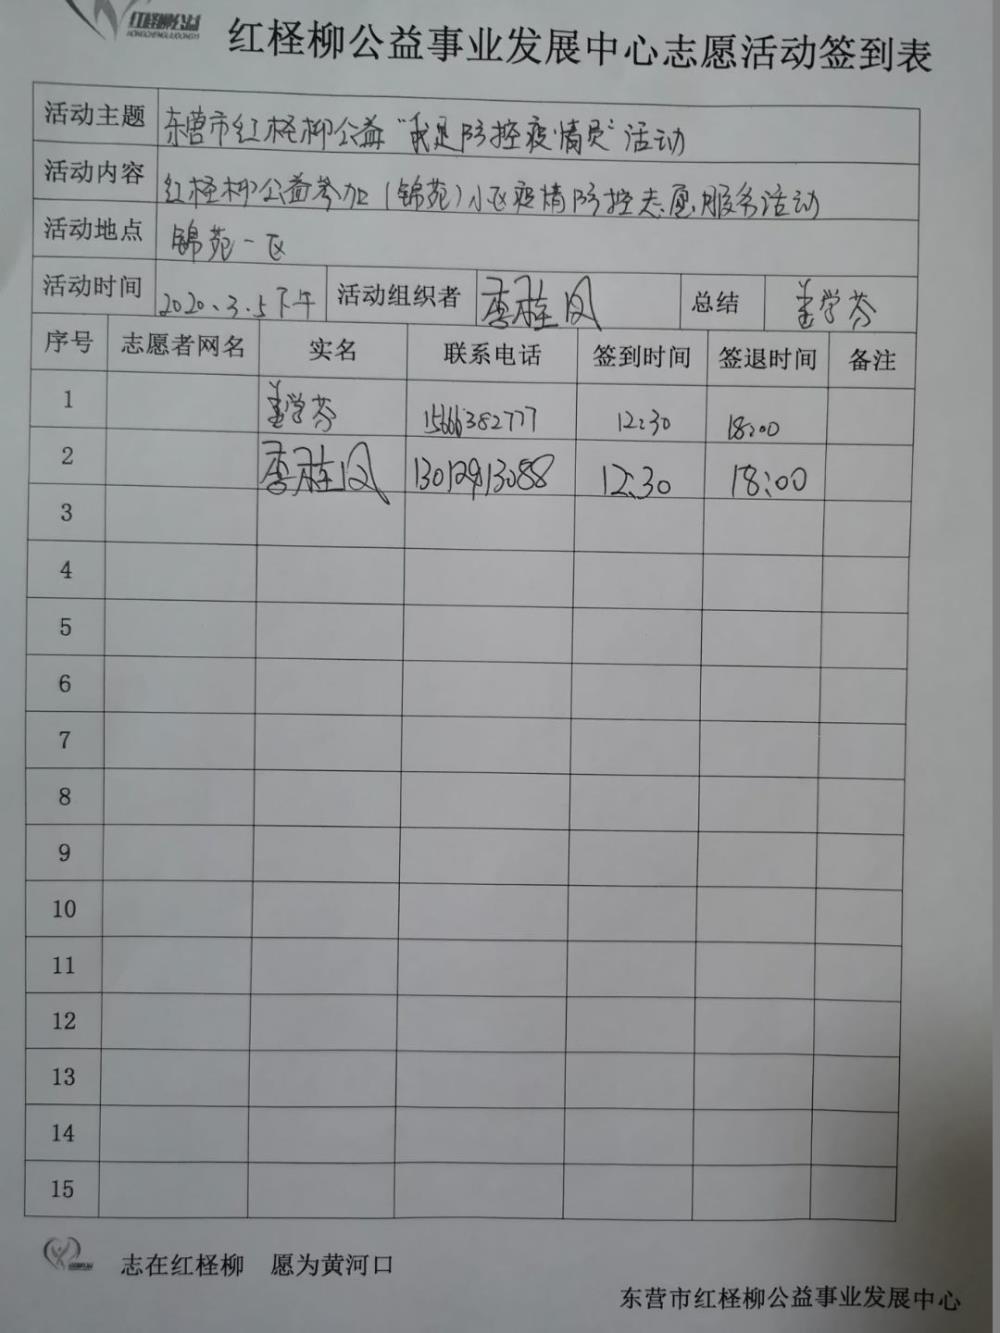 红柽柳公益
HONGCHENGLIUGONGYI
红柽柳公益事业发展中心志愿活动签到表
活动主题 东营市红柽柳公益“我是防控疫情员”活动
活动内容 红柽柳公益参加(锦苑)小区疫情防控志愿服务活动
活动地点 锦苑一区
活动时间 2020.3.5下午 活动组织者 李桂凤 总结 姜学芬
序号 志愿者网名 实名 联系电话 签到时间 签退时间 备注
1 姜学芬 15666382777 12:30 18:00
2 李桂凤 13012913088 12:30 18:00
3
4
5
6
7
8
9
10
11
12
13
14
15
志在红柽柳 愿为黄河口
东营市红柽柳公益事业发展中心